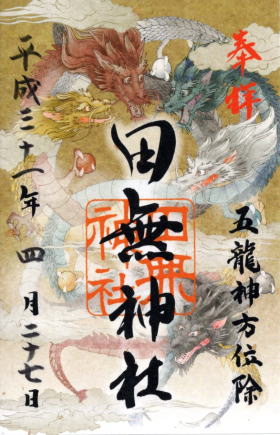 奉拝
五龍神方位除
田無神社
田無神社
平成三十一年四月二十七日